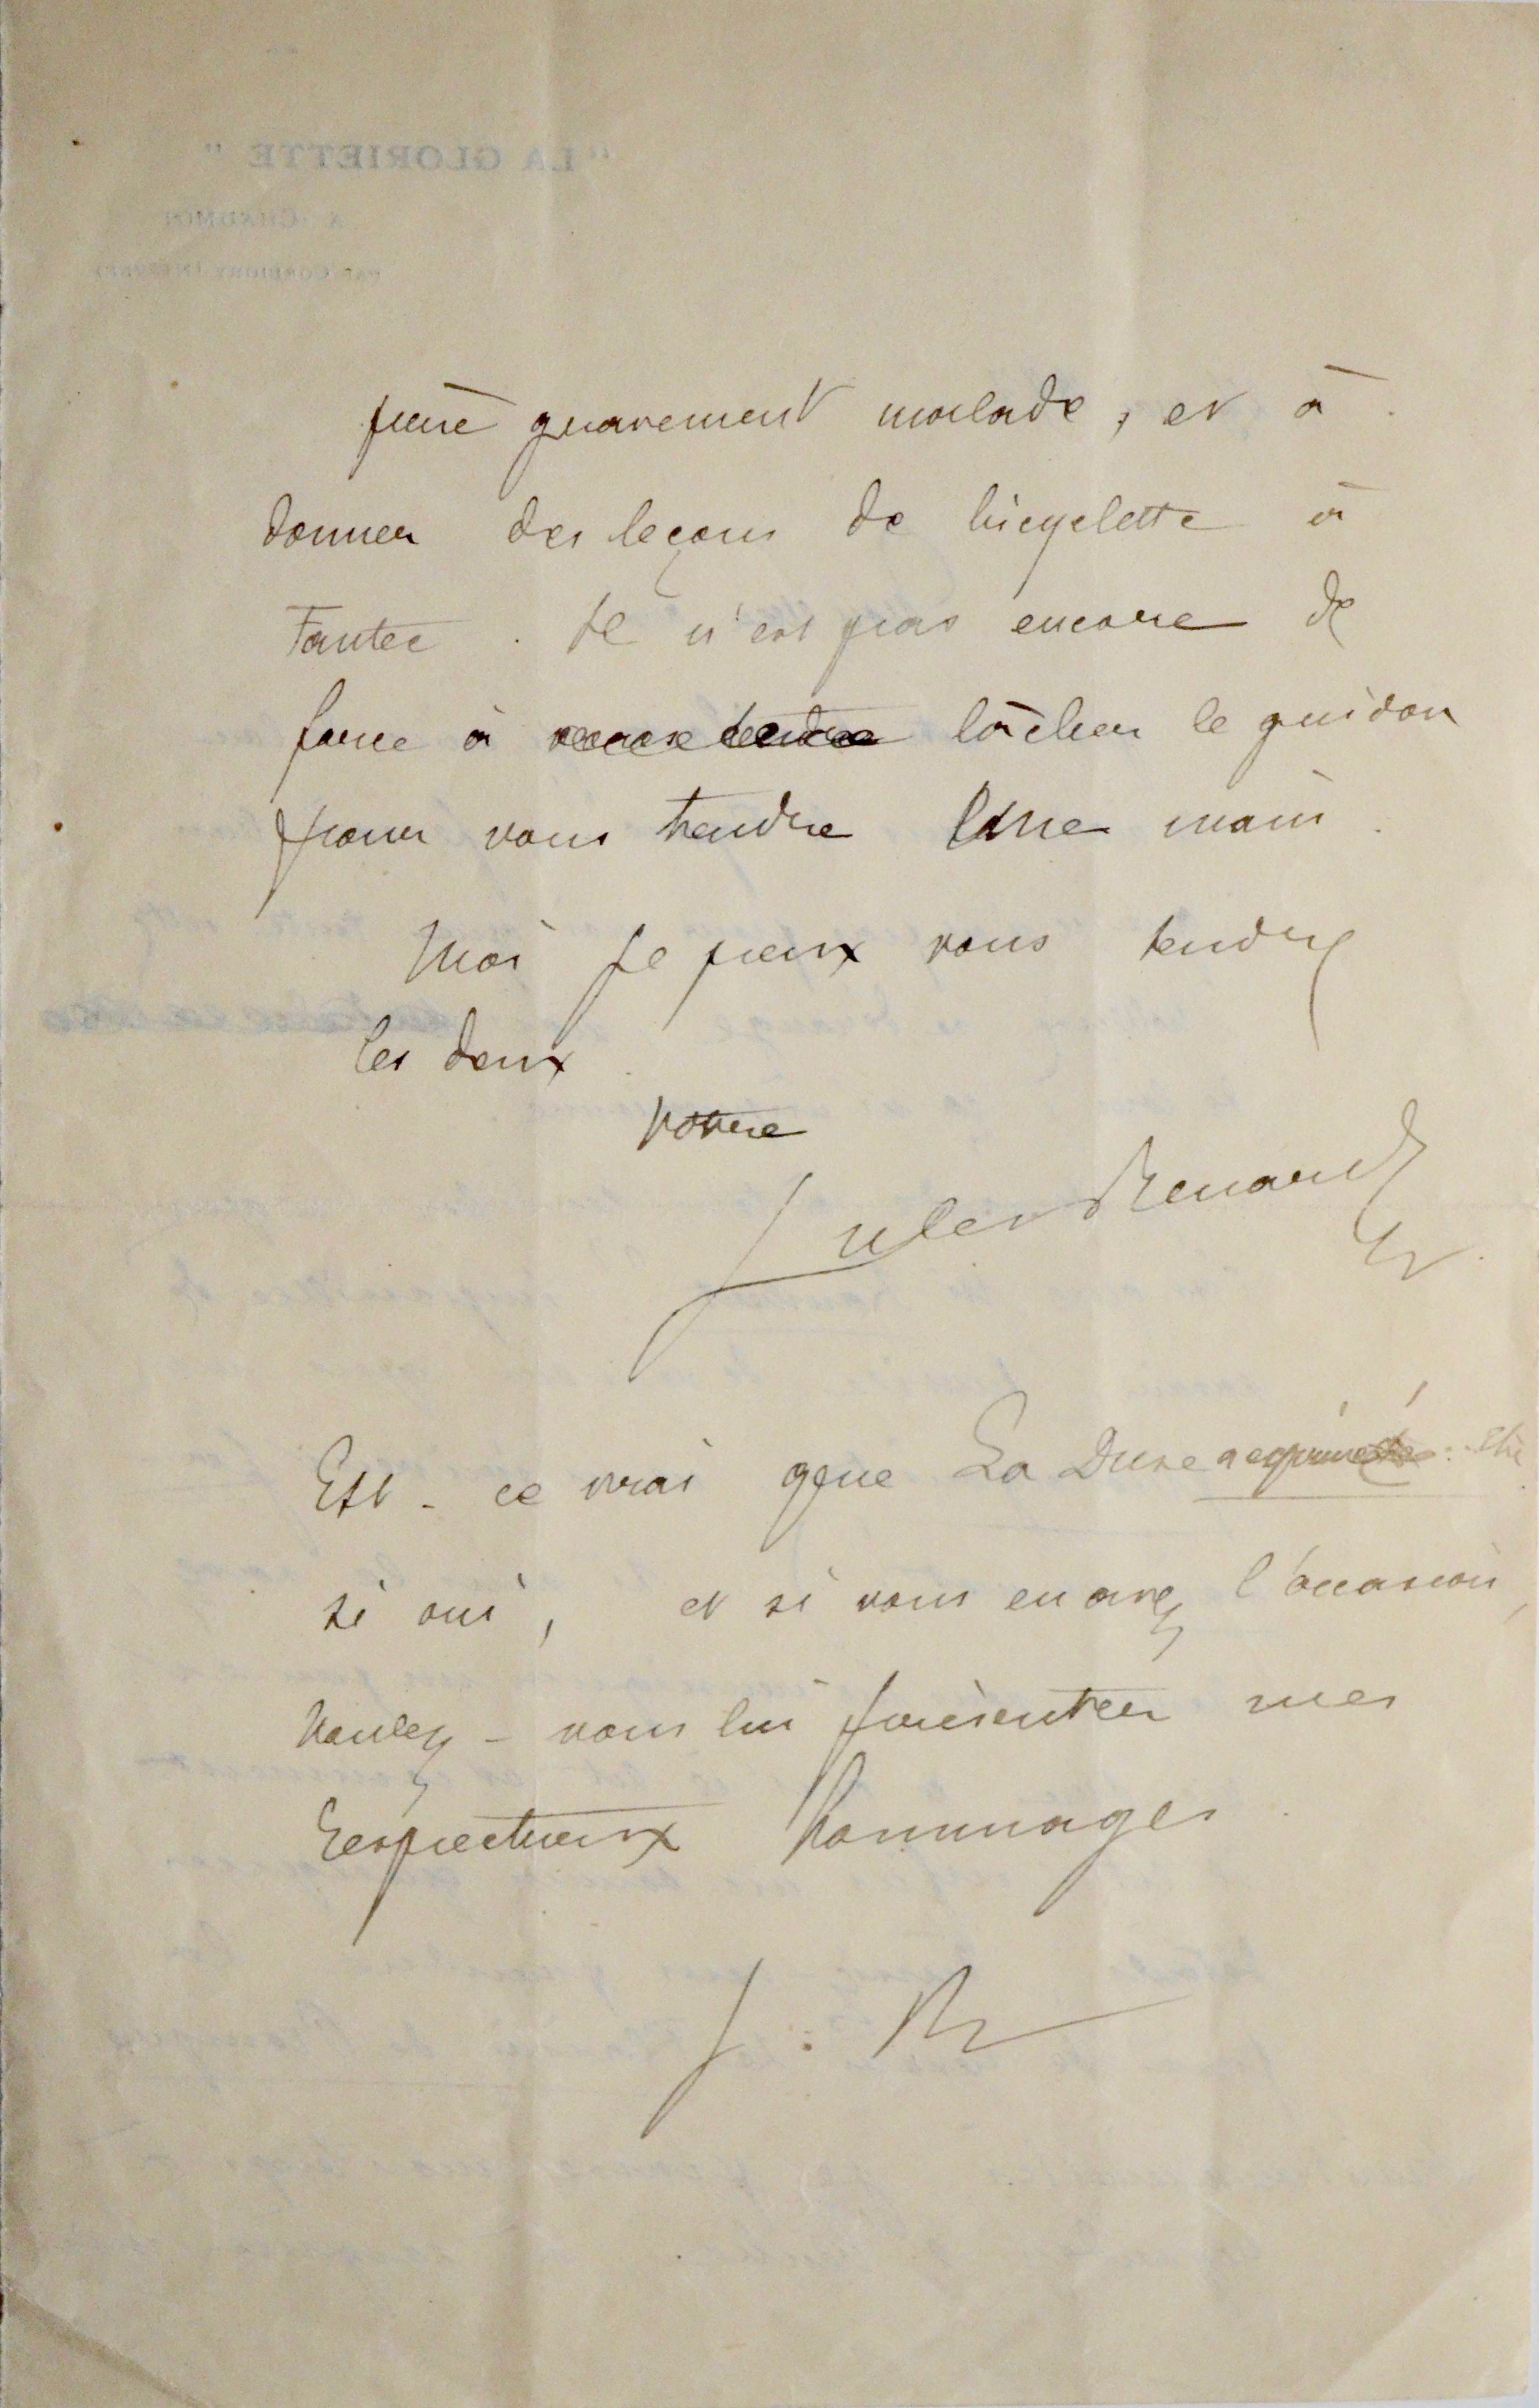 "LA GLORIETTE"
A CHAUMOT
PAR CORBIGNY (NIÈVRE)
père gravement malade, et à
donner des leçons de bicyclette à
Fantec. Il n'est pas encore de
force à vous tendre lâcher le guidon
pour vous tendre une main.
Moi je peux vous tendre
les deux.
Votre
Jules Renard
Est-ce vrai que La Duse
si oui, et si vous en avez l'occasion,
voulez-vous lui présenter mes
respectueux hommages.
J. R